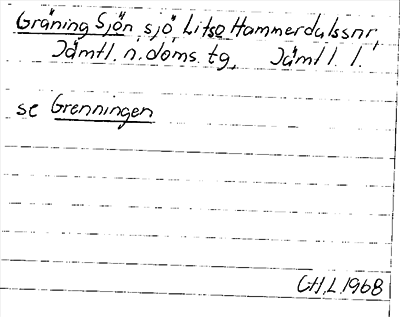 Gräning Sjön, sjö, Litso Hammerdalssnr,
Jämtl. n. doms. tg, Jämtl. l.
se Grenningen
CH.L.1968